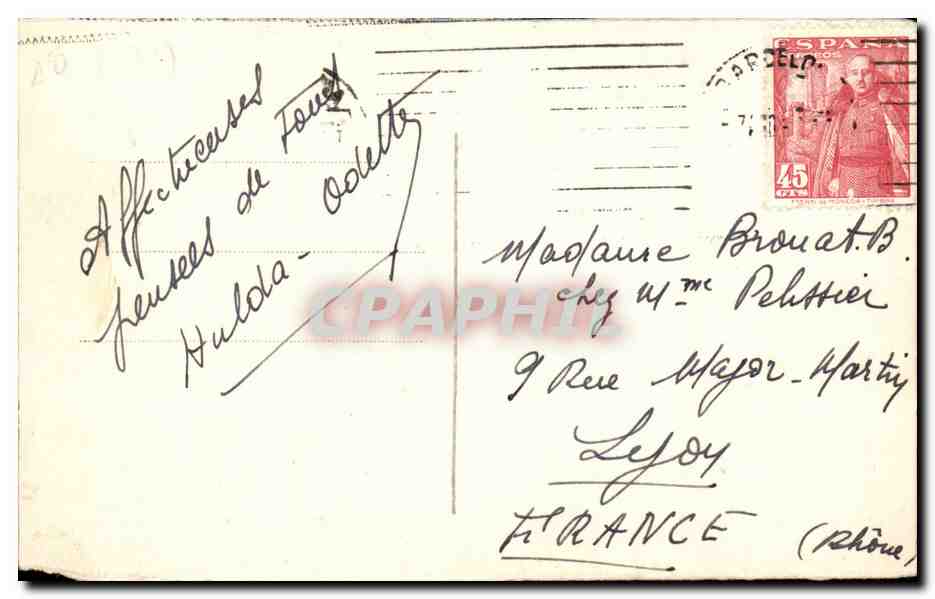 Affectueuses
pensées de Tous
Hulda - Odette
BARCELO
ESPAÑA
CORREOS
45
CTS
Madame Brouat.B.
chez Mme Pelissier
9 Rue Major-Martin
Lyon
FRANCE
(Rhône)
CPAPHIL